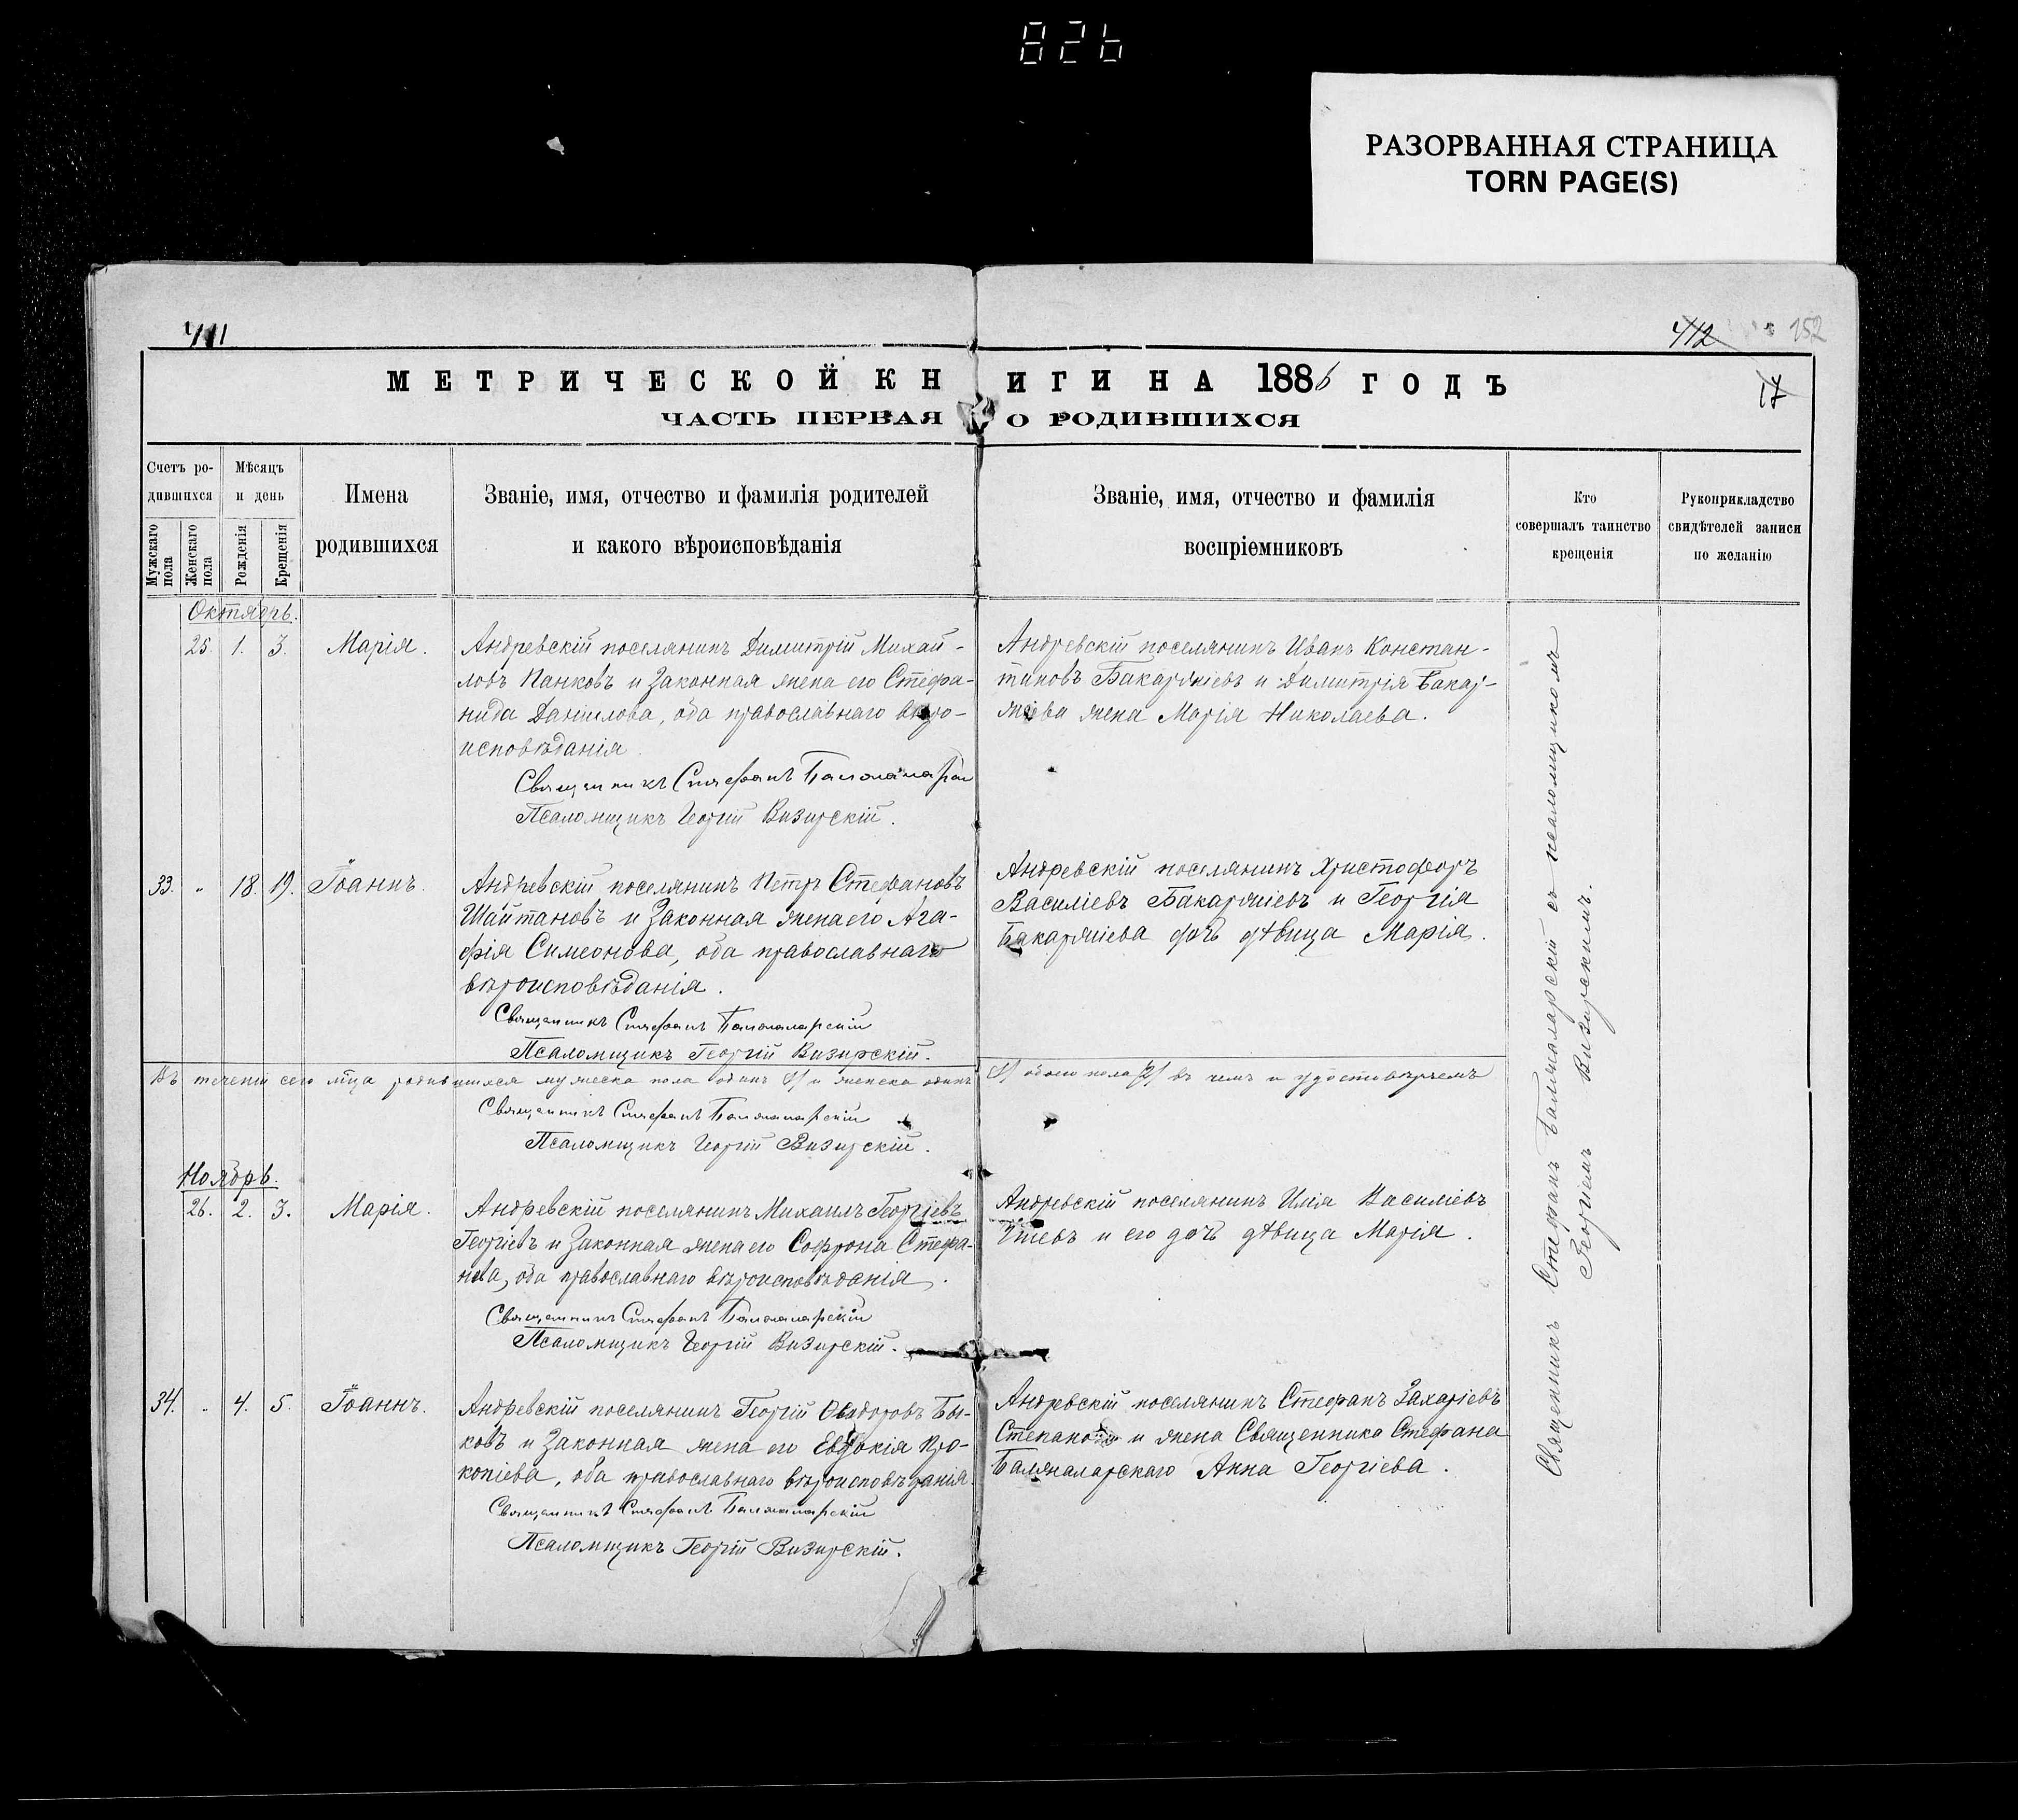 826
РАЗОРВАННАЯ СТРАНИЦА
TORN PAGE(S)
411
412
152
МЕТРИЧЕСКОЙ КНИГИ НА 1886 ГОДЪ
17
ЧАСТЬ ПЕРВАЯ О РОДИВШИХСЯ
Счетъ ро-
дившихся
Мужскаго пола
Женскаго пола
Мѣсяцъ
и день
Рожденія
Крещенія
Имена
родившихся
Званіе, имя, отчество и фамилія родителей
и какого вѣроисповѣданія
Званіе, имя, отчество и фамилія
воспріемниковъ
Кто
совершалъ таинство
крещенія
Рукоприкладство
свидѣтелей записи
по желанію
Октябрь.
25. 1. 3. Марія.
Андревскій поселянинъ Димитрій Михай-
ловъ Панковъ и Законная жена его Стефа-
нида Даніилова, оба православнаго вѣро-
исповѣданія
Священникъ Стефанъ
Псаломщикъ Георгій Визирскій.
Андревскій поселянинъ Иванъ Констан-
тиновъ Бакаржіевъ и Димитрія Бакар-
жіева жена Марія Николаева.
33. " 18. 19. Іоаннъ.
Андревскій поселянинъ Петръ Стефановъ
Шайтановъ и Законная жена его Ага-
фія Симеонова, оба православнаго
вѣроисповѣданія.
Священникъ Стефанъ Балжаларскій
Псаломщикъ Георгій Визирскій.
Андревскій поселянинъ Христофоръ
Василіевъ Бакаржіевъ и Георгія
Бакаржіева дочь дѣвица Марія.
Въ теченіи сего м͠ца родившихся мужеска пола одинъ /1/ и женска одинъ /1/ обоего пола /2/ въ чемъ и удостовѣряемъ
Священникъ Стефанъ Балжаларскій
Псаломщикъ Георгій Визирскій.
Ноябрь.
26. 2. 3. Марія.
Андревскій поселянинъ Михаилъ Георгіевъ
Георгіевъ и Законная жена его Софрона Стефа-
нова, оба православнаго вѣроисповѣданія.
Священникъ Стефанъ Балжаларскій
Псаломщикъ Георгій Визирскій.
Андревскій поселянинъ Илія Василіевъ
и его дочь дѣвица Марія.
34. " 4. 5. Іоаннъ.
Андревскій поселянинъ Георгій Ѳеодоровъ Бы-
ковъ и Законная жена его Евдокія Про-
копіева, оба православнаго вѣроисповѣданія.
Священникъ Стефанъ Балжаларскій
Псаломщикъ Георгій Визирскій.
Андревскій поселянинъ Стефанъ Захаріевъ
Степановъ и жена Священника Стефана
Балжаларскаго Анна Георгіева.
Священникъ Стефанъ Балжаларскій съ псаломщикомъ
Георгіемъ Визирскимъ.